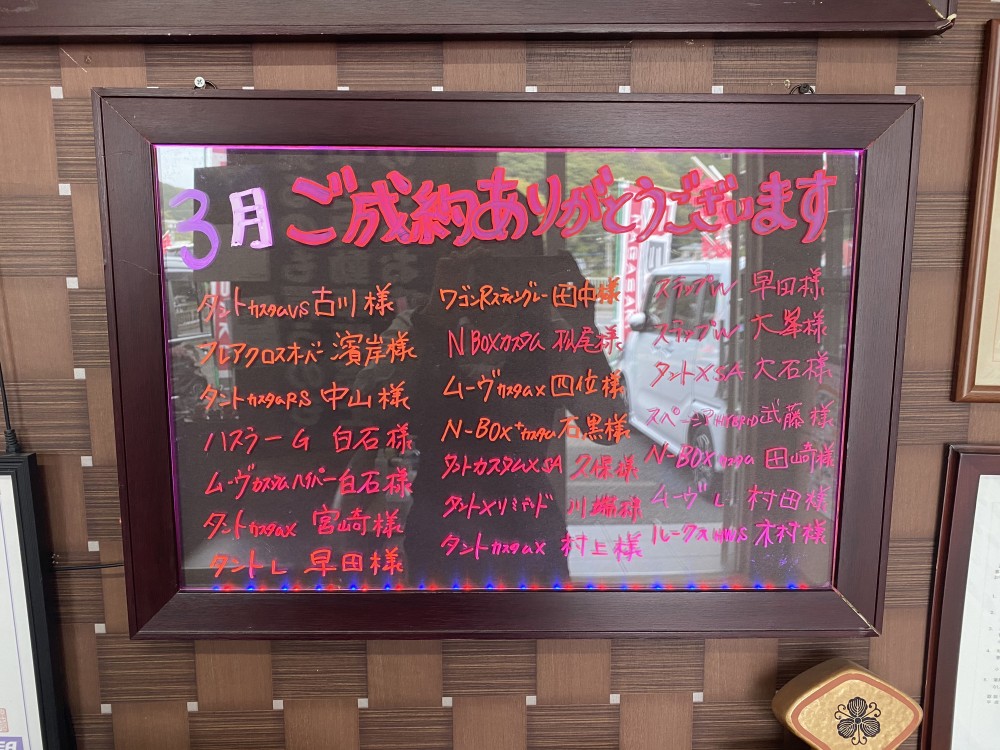 3月 ご成約ありがとうございます
タントカスタムVS 古川様
フレアクロスオーバー 濱岸様
タントカスタムRS 中山様
ハスラーG 白石様
ムーヴカスタムハイパー 白石様
タントカスタムX 宮崎様
タントL 早田様
ワゴンRスティングレー 田中様
N BOXカスタム 松尾様
ムーヴカスタムX 四位様
N-BOX+カスタム 石黒様
タントカスタムXSA 久保様
タントXリミテッド 川端様
タントカスタムX 村上様
ステップW 早田様
ステップW 大峯様
タントXSA 大石様
スペーシアHYBRID 武藤様
N-BOXカスタム 田崎様
ムーヴL 村田様
ルークス 木村様